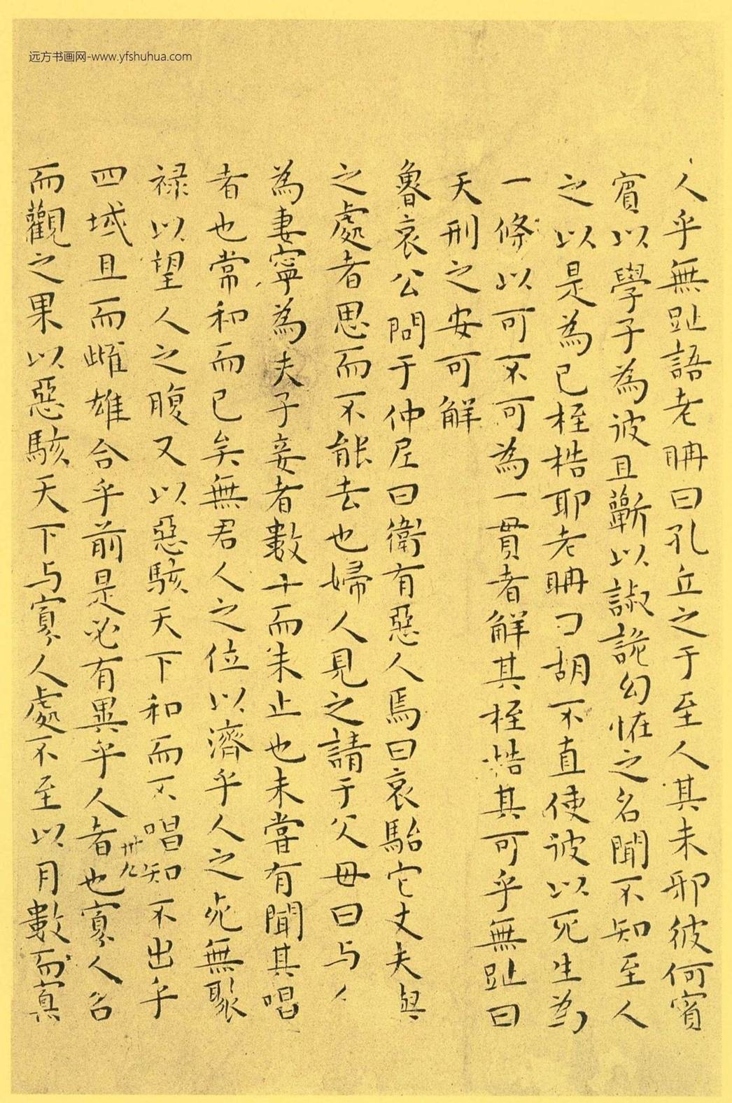 远方书画网-www.yfshuhua.com
人乎無趾語老聃曰孔丘之于至人其未邪彼何賓
賓以學子為彼且蘄以諔詭幻怪之名聞不知至人
之以是為己桎梏耶老聃曰胡不直使彼以死生為
一條以可不可為一貫者解其桎梏其可乎無趾曰
天刑之安可解
魯哀公問于仲尼曰衛有惡人焉曰哀駘它丈夫與
之處者思而不能去也婦人見之請于父母曰与人
為妻寧為夫子妾者數十而未止也未嘗有聞其唱
者也常和而已矣無君人之位以濟乎人之死無聚
禄以望人之腹又以惡駭天下和而不唱知不出乎
四域且而雌雄合乎前是必有異乎人者也寡人召
而觀之果以惡駭天下与寡人處不至以月數而寡